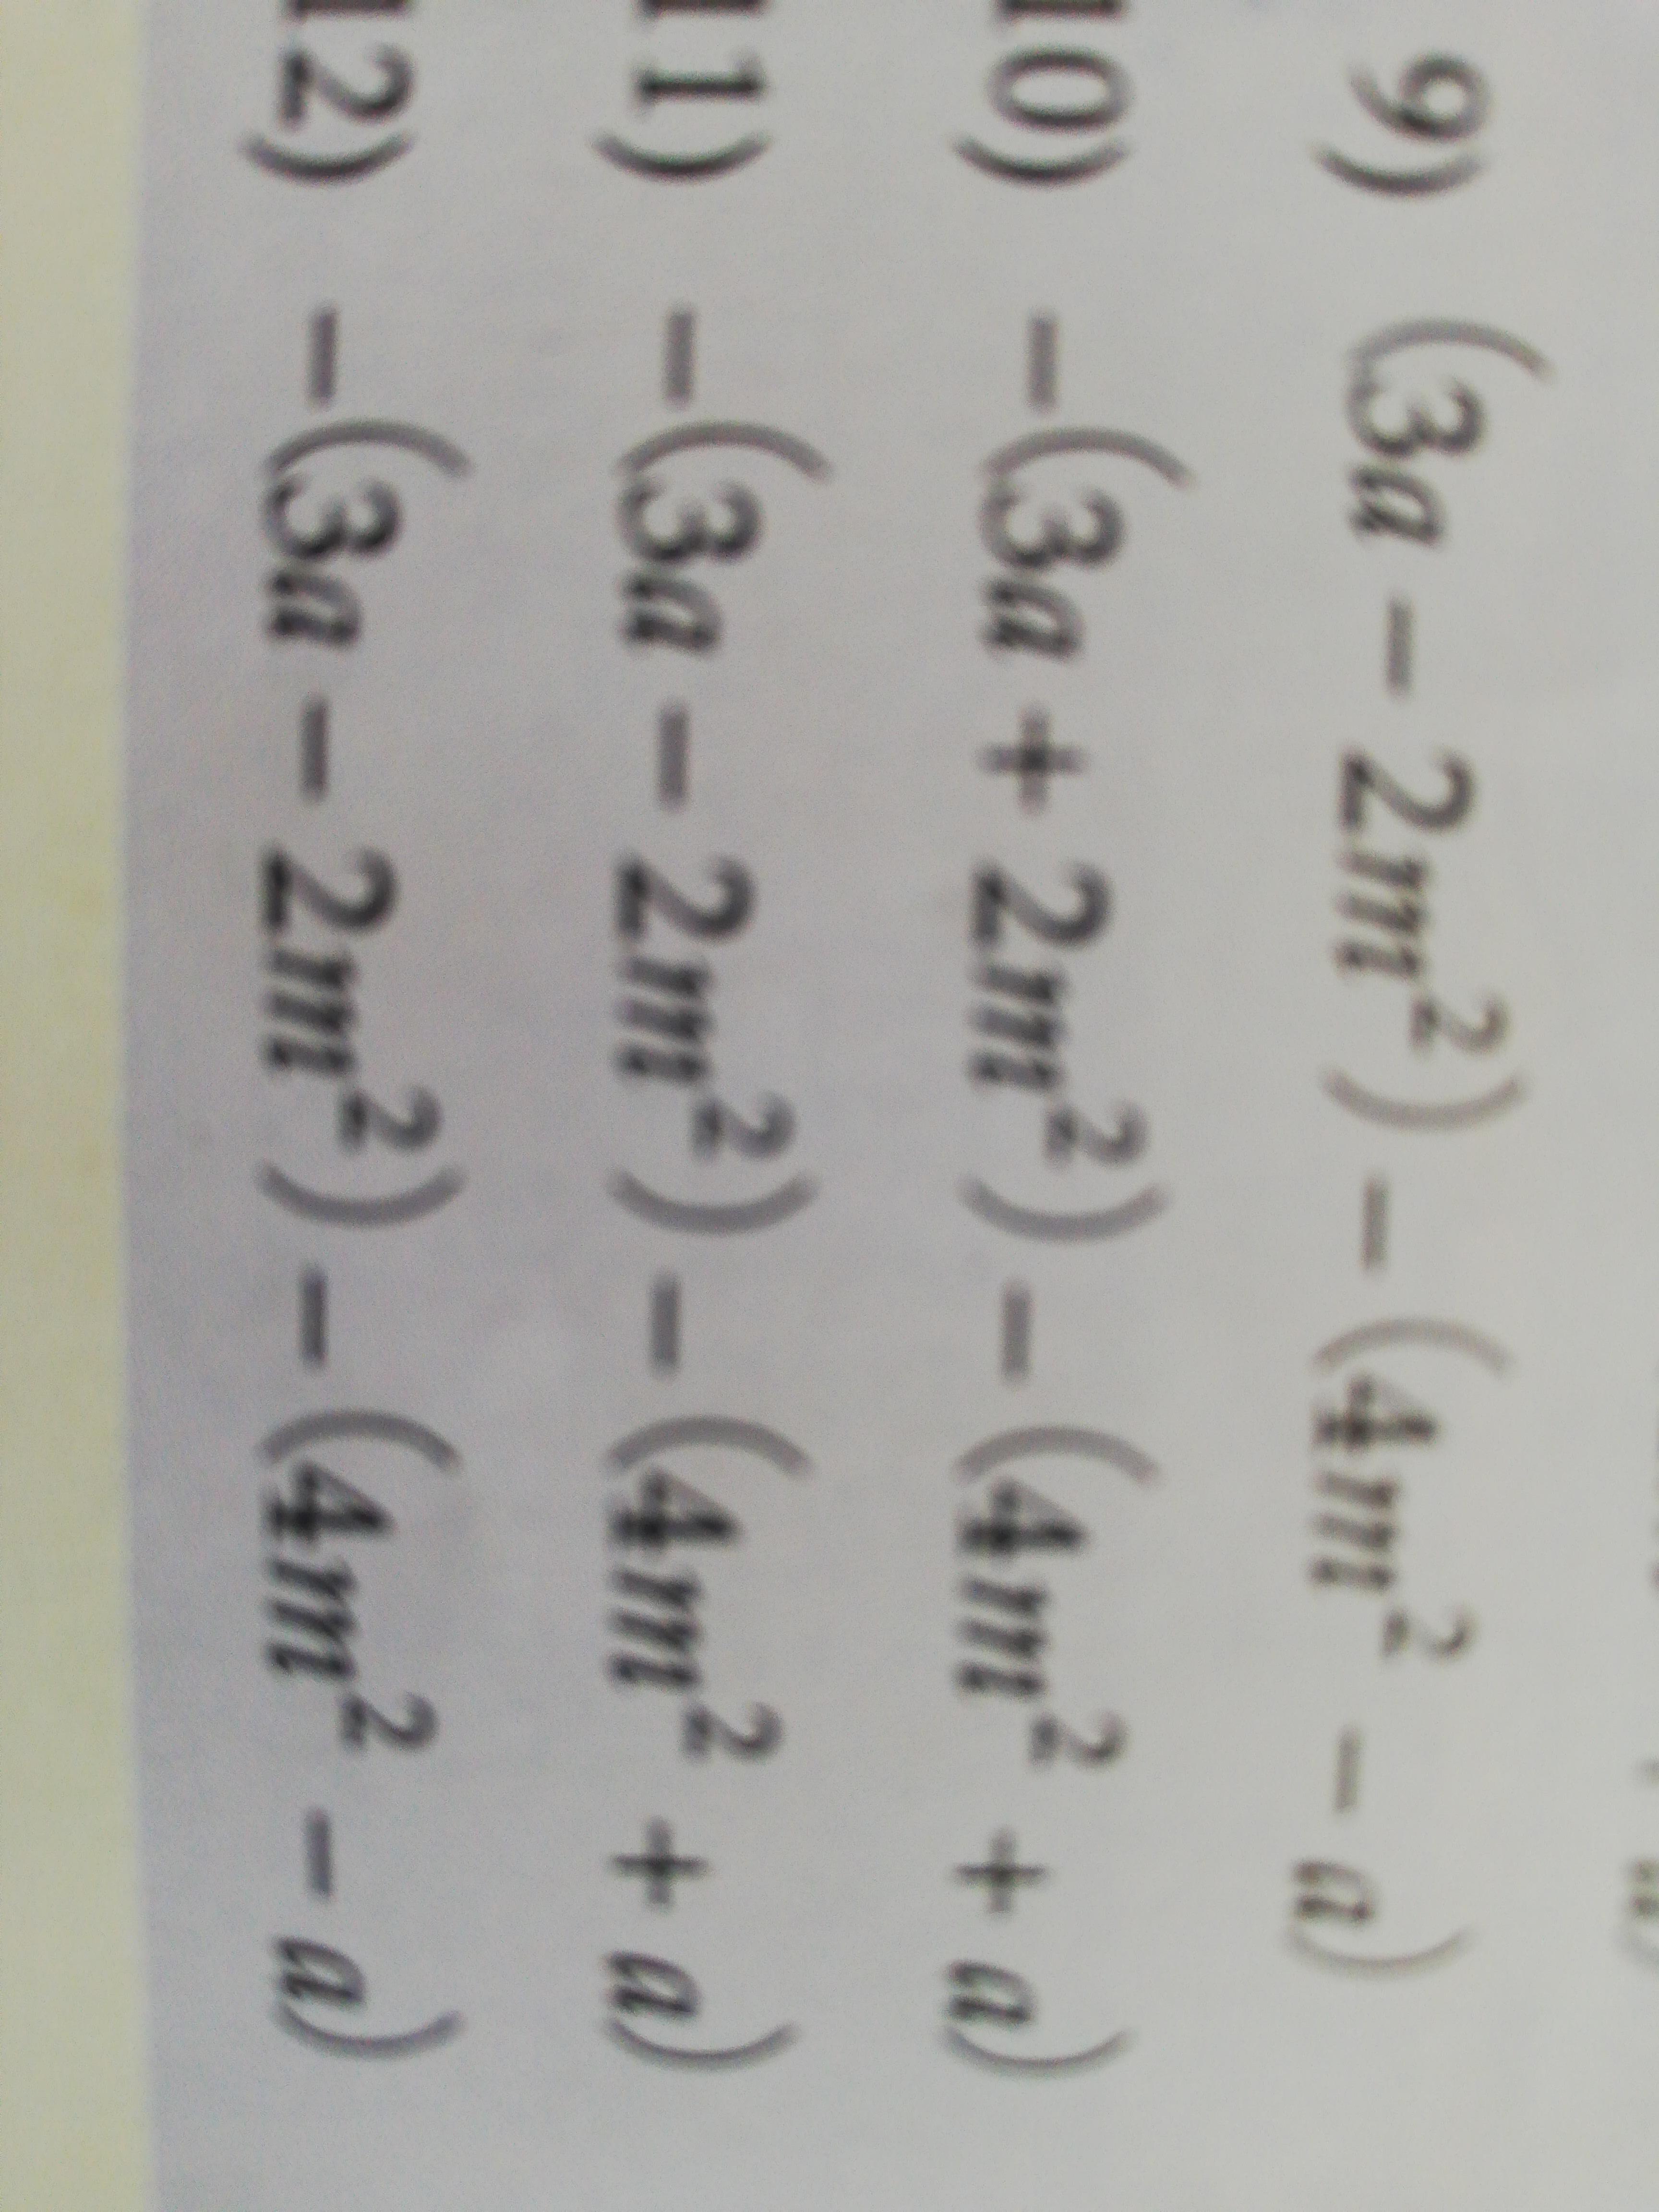 9) (3a − 2m²) − (4m² − a)
10) −(3a + 2m²) − (4m² + a)
11) −(3a − 2m²) − (4m² + a)
12) −(3a − 2m²) − (4m² − a)